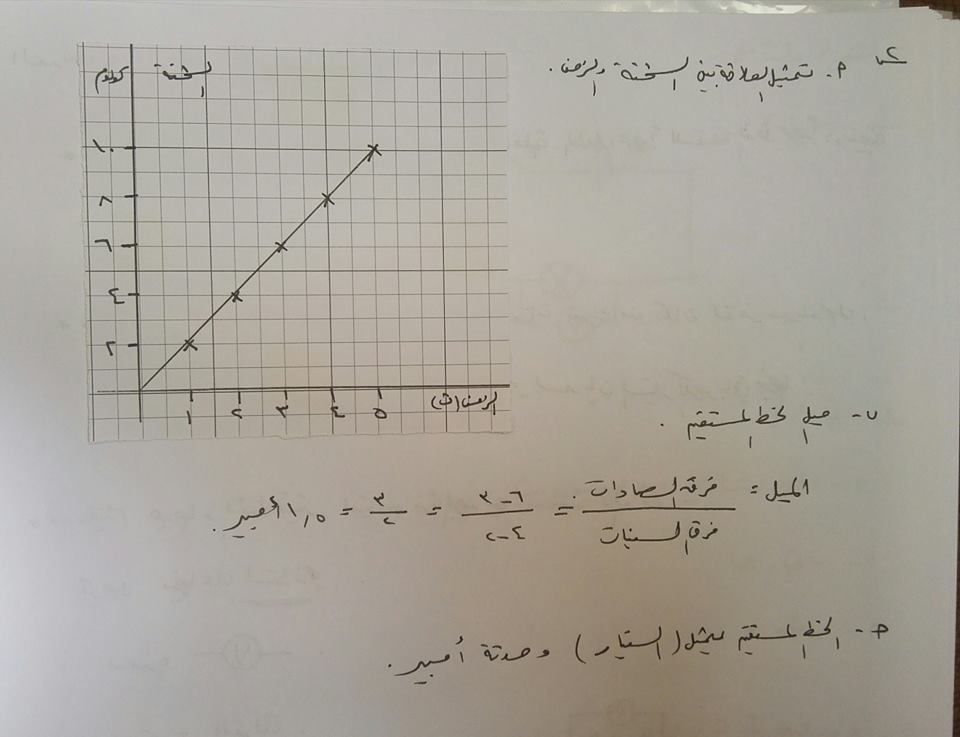 ٢-
٢- تمثيل العلاقة بين الشحنة والزمن.
كولوم
الشحنة
١٠
٨
٦
٤
٢
١ ٢ ٣ ٤ ٥
الزمن (ث)
ب- ميل الخط المستقيم.
الميل = فرق الصادات / فرق السينات = ٦-٣ / ٤-٢ = ٣ / ٢ = ١,٥ أمبير.
ح- الخط المستقيم يمثل (التيار) وحدتة أمبير.